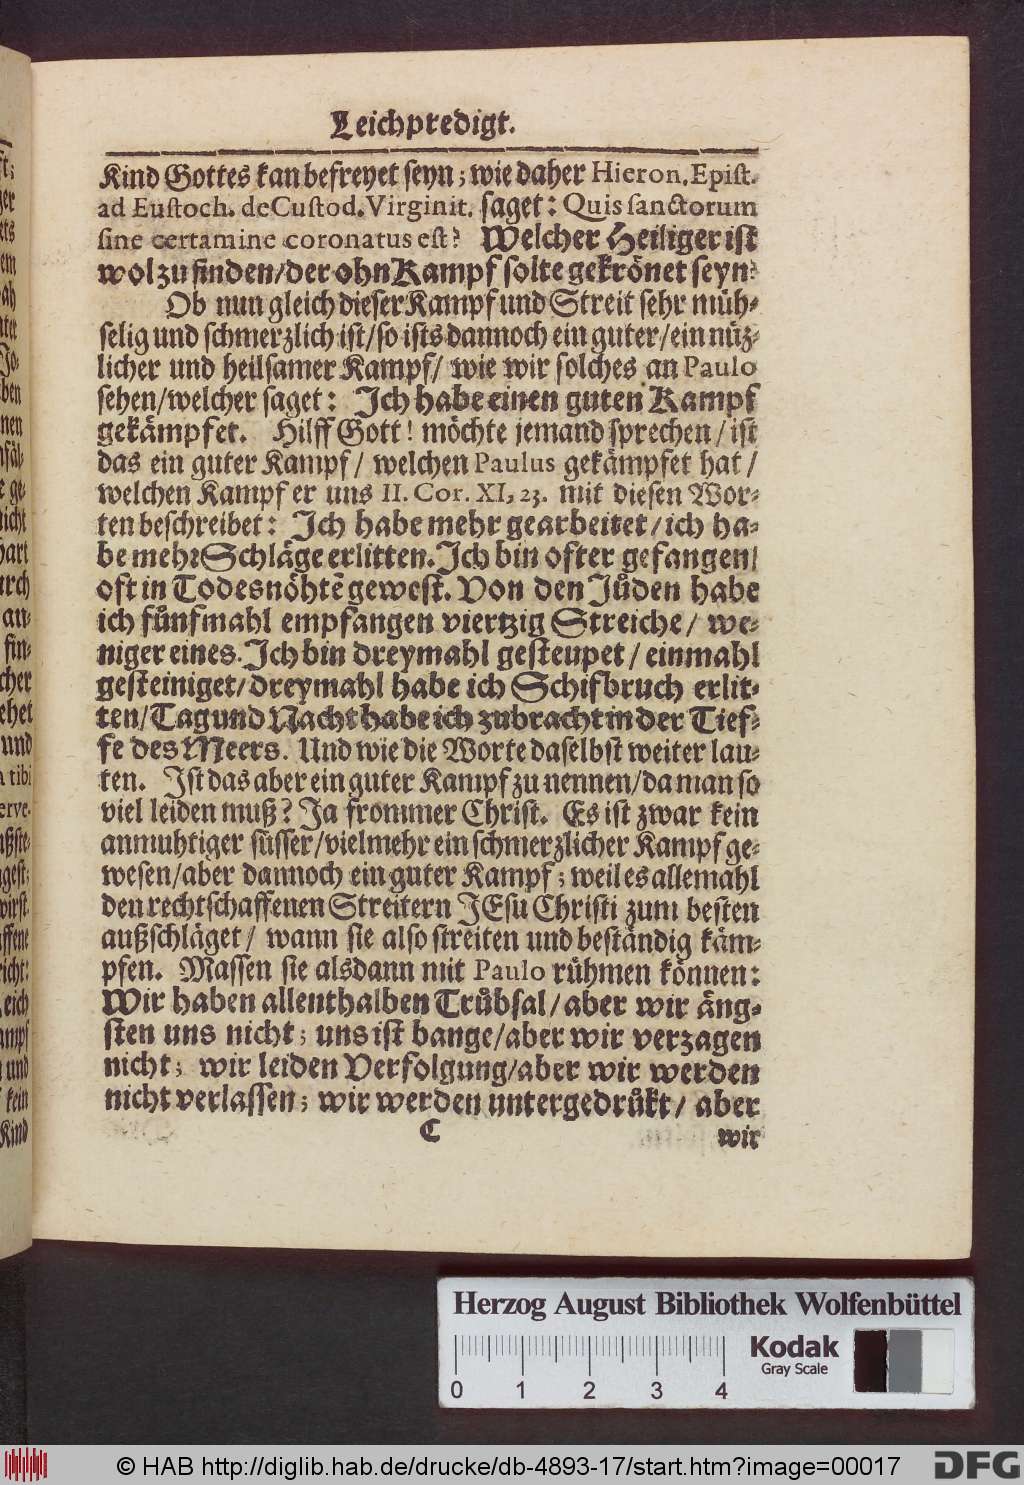 Leichpredigt.
Kind Gottes kan befreyet seyn; wie daher Hieron. Epist.
ad Eustoch. de Custod. Virginit. saget: Quis sanctorum
sine certamine coronatus est? Welcher Heiliger ist
wol zu finden/der ohn Kampf solte gekrönet seyn?
Ob nun gleich dieser Kampf und Streit sehr müh-
selig und schmerzlich ist/so ists dannoch ein guter/ein nüz-
licher und heilsamer Kampf/ wie wir solches an Paulo
sehen/welcher saget: Ich habe einen guten Kampf
gekämpfet. Hilff Gott! möchte jemand sprechen/ ist
das ein guter Kampf/ welchen Paulus gekämpfet hat/
welchen Kampf er uns II. Cor. XI, 23. mit diesen Wor-
ten beschreibet: Ich habe mehr gearbeitet/ ich ha-
be mehr Schläge erlitten. Ich bin ofter gefangen/
oft in Todesnöhtē gewest. Von den Jůden habe
ich fůnfmahl empfangen viertzig Streiche/ we-
niger eines. Ich bin dreymahl gesteupet/ einmahl
gesteiniget/dreymahl habe ich Schifbruch erlit-
ten/Tag und Nacht habe ich zubracht in der Tief-
fe des Meers. Und wie die Worte daselbst weiter lau-
ten. Ist das aber ein guter Kampf zu nennen/da man so
viel leiden muß? Ja frommer Christ. Es ist zwar kein
anmuhtiger süsser/vielmehr ein schmerzlicher Kampf ge-
wesen/aber dannoch ein guter Kampf; weil es allemahl
den rechtschaffenen Streitern JEsu Christi zum besten
außschläget/ wann sie also streiten und beständig käm-
pfen. Massen sie alsdann mit Paulo rühmen können:
Wir haben allenthalben Trůbsal/ aber wir äng-
sten uns nicht; uns ist bange/aber wir verzagen
nicht; wir leiden Verfolgung/aber wir werden
nicht verlassen; wir werden untergedrůkt/ aber
C
wir
Herzog August Bibliothek Wolfenbüttel
Kodak
Gray Scale
0 1 2 3 4
© HAB http://diglib.hab.de/drucke/db-4893-17/start.htm?image=00017
DFG